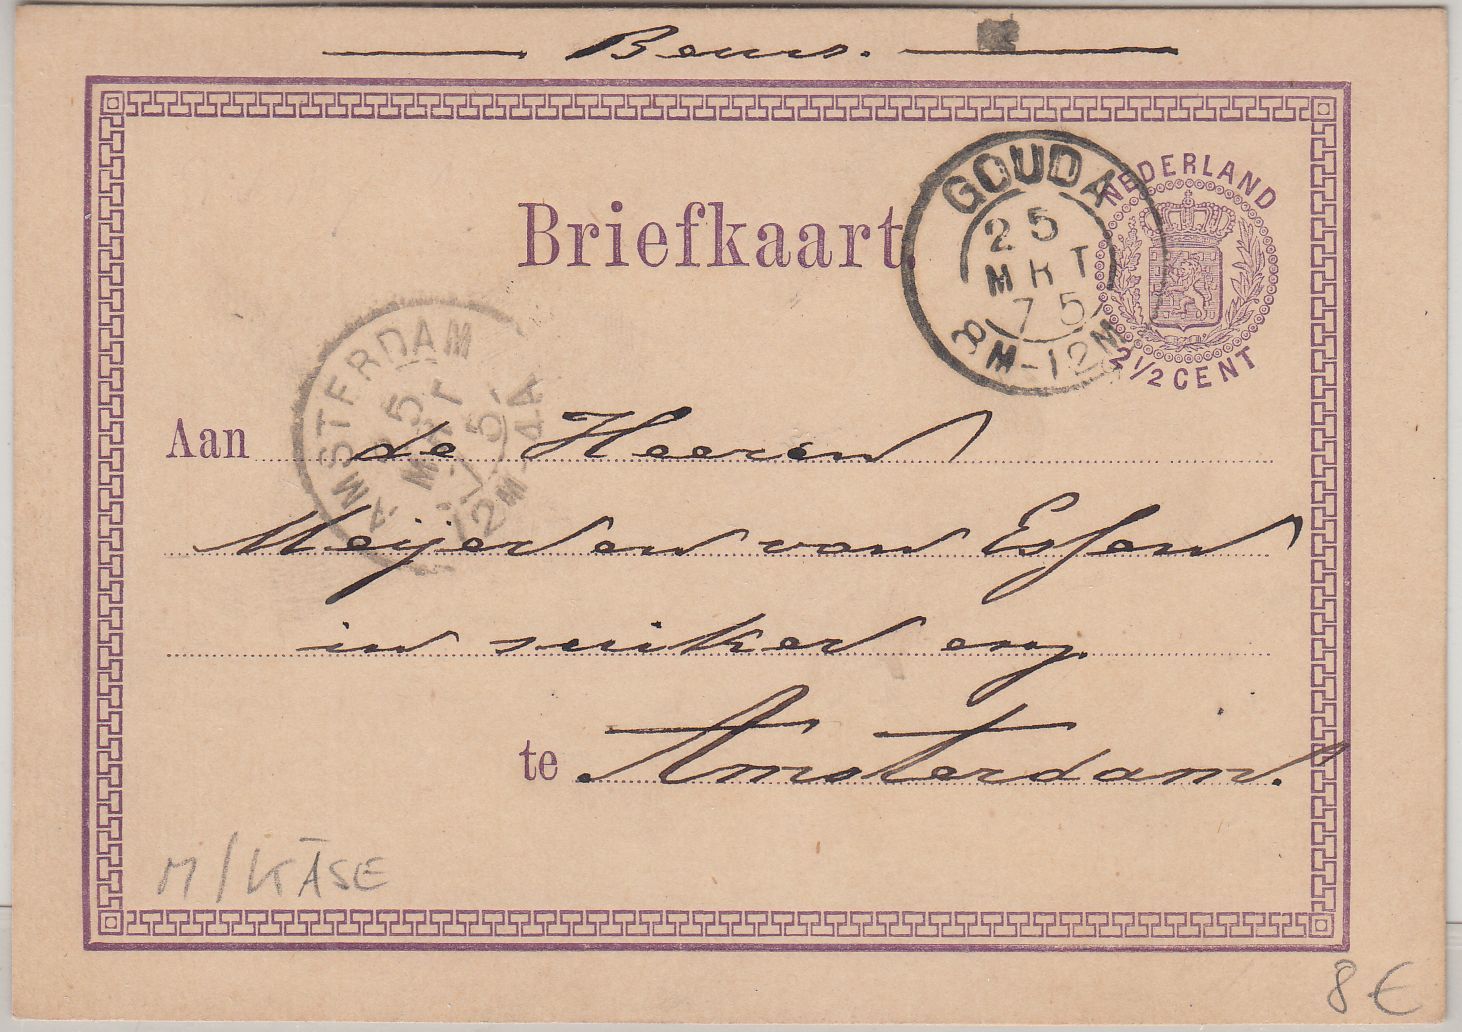 Beurs.
Briefkaart.
GOUDA
25
MRT
75
8M-12M
NEDERLAND
2½ CENT
AMSTERDAM
25
MRT
75
12M-4A
Aan de Heeren
Meijer en van Essen
in suiker enz.
te Amsterdam.
M/KÄSE
8 €